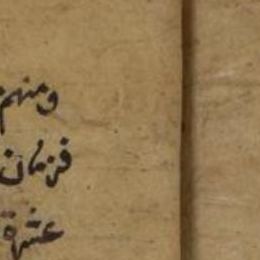 ومنهم
قزمان
عشرة